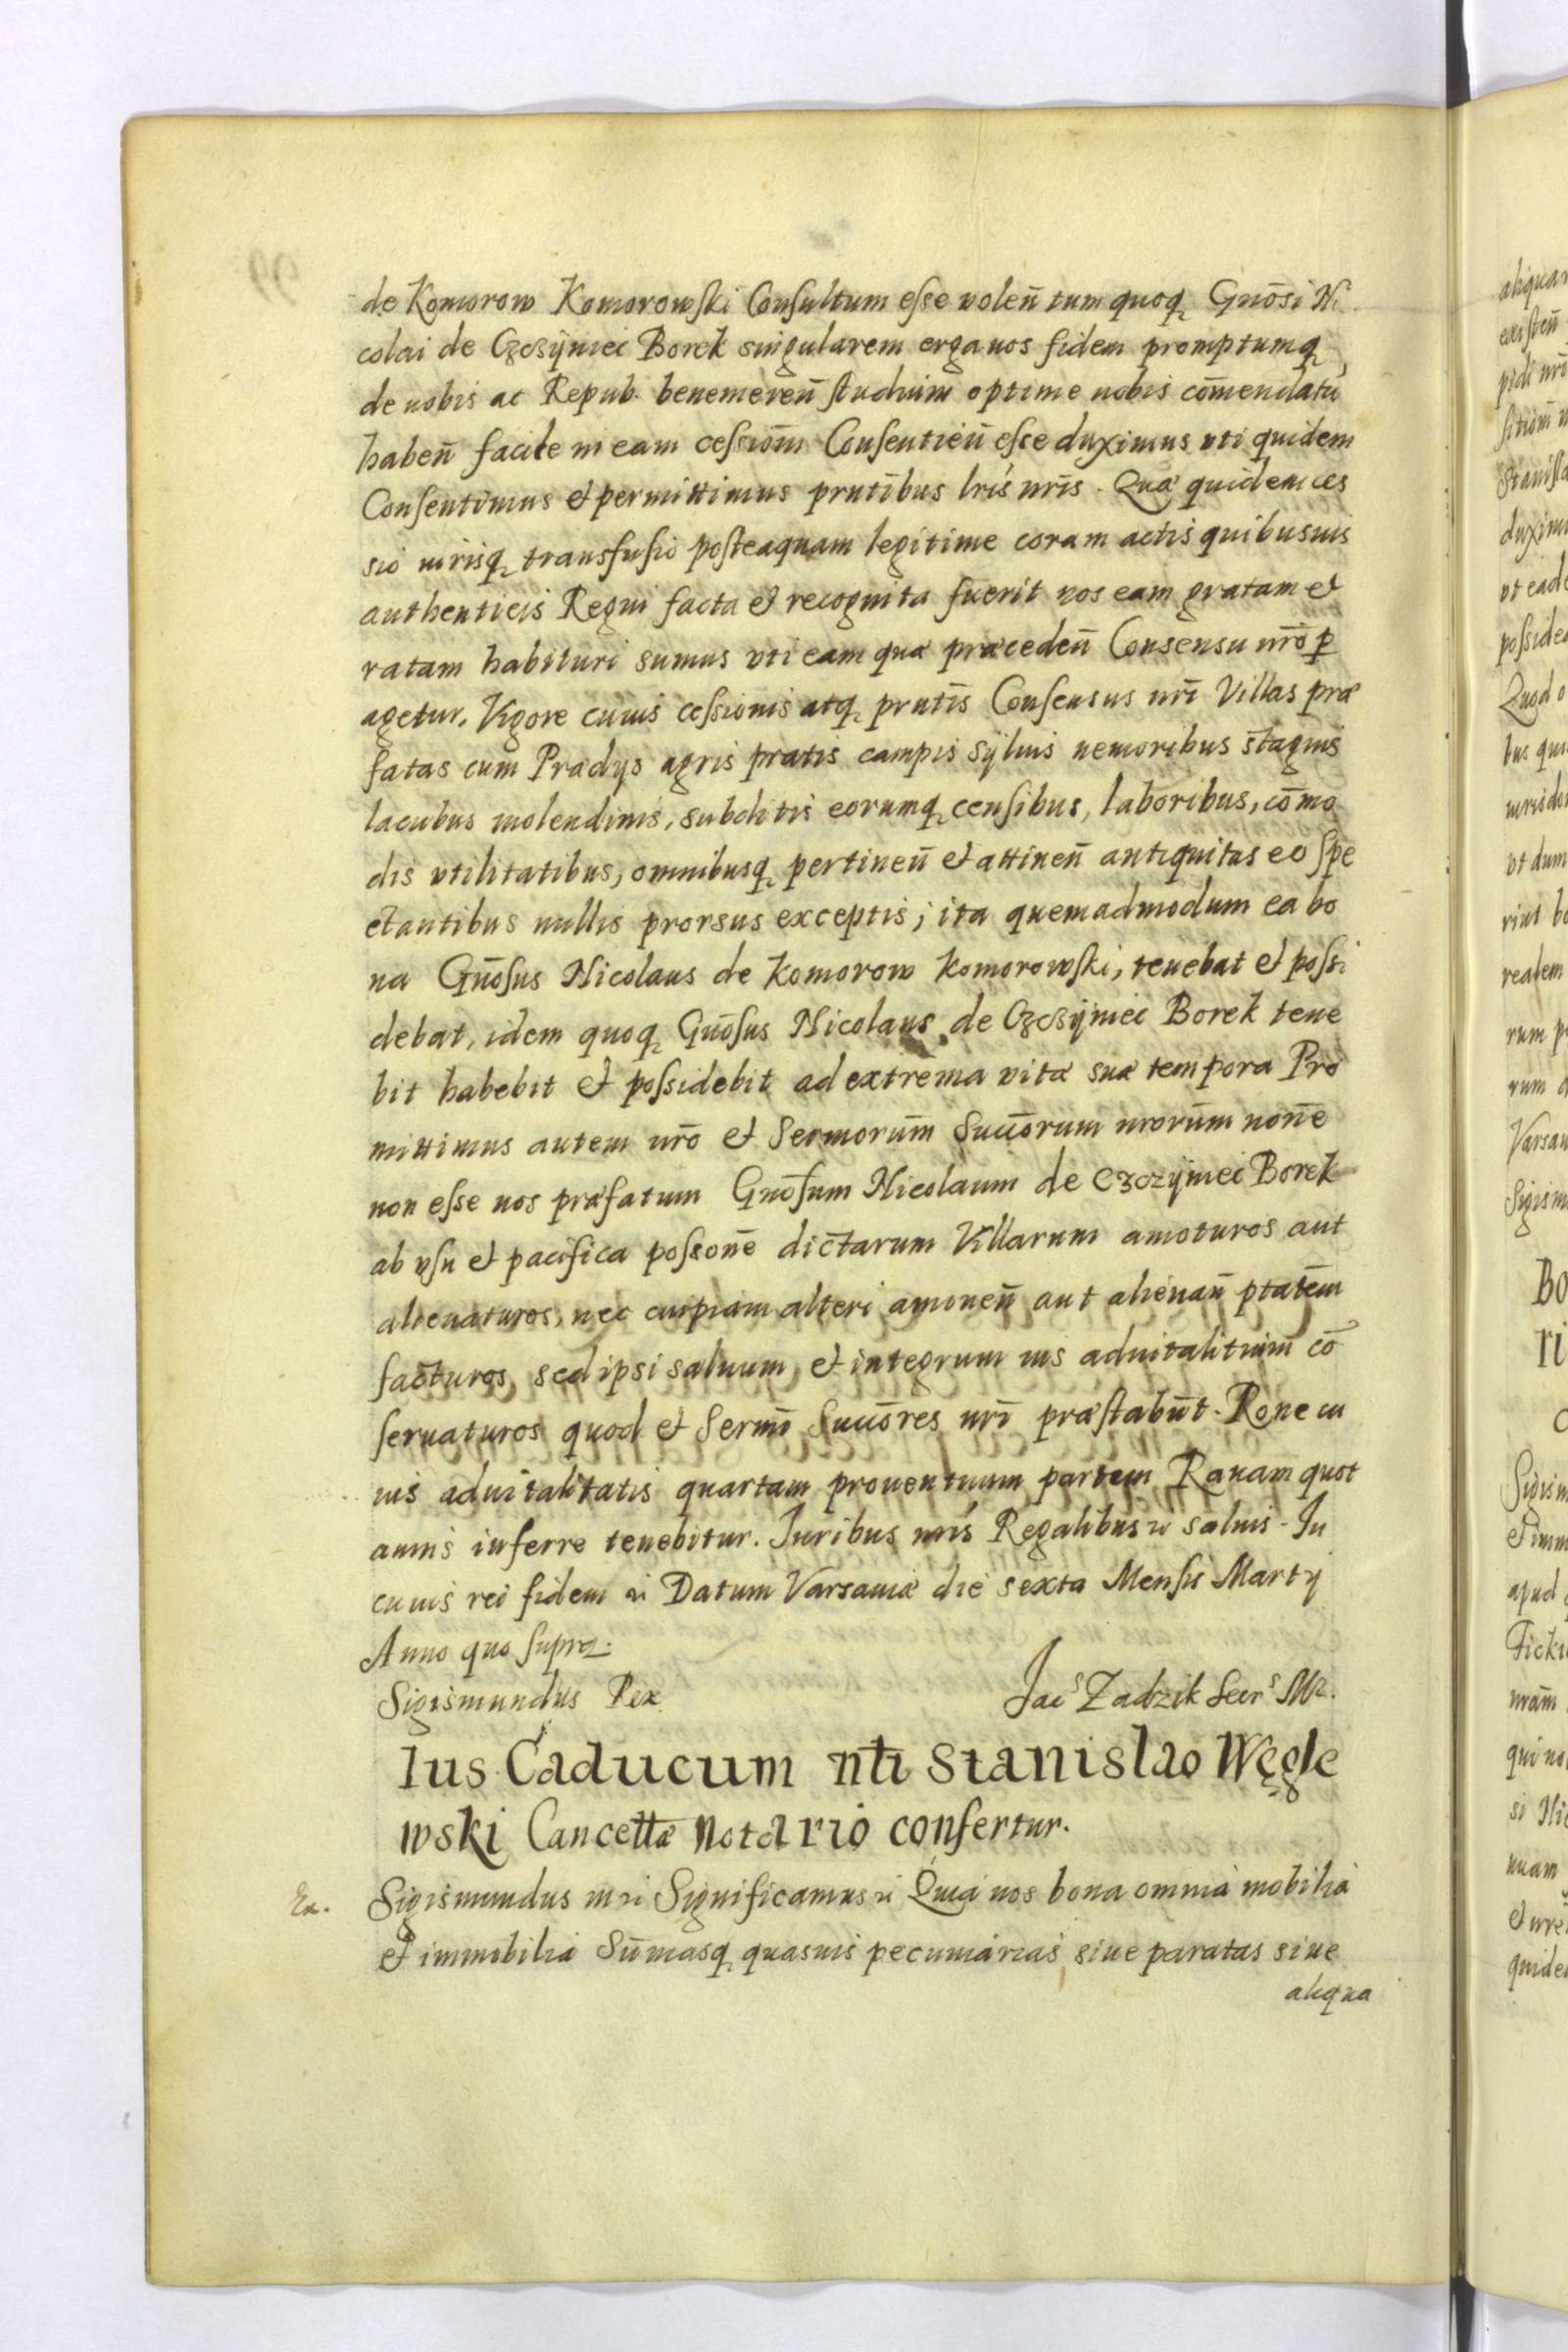 de Komorow Komorowſki Conſultum eſse volen̄ tum quoq Gnōsi Ni
colai de Czczÿniei Borek singularem erga nos fidem promptumq
de nobis ac Repub. benemeren̄ ſtudium optime nobis cōmendatū
haben̄ facile in eam ceſsiom̄ Conſentien̄ eſse duximus vti quidem
Conſentimus et permittimus prntībus lris nrīs. Quæ quidem ces
sio iurisq transfuſio poſteaquam legitime coram actis quibusuis
authenticis Regni facta et recognita fuerit nos eam gratam et
ratam habituri sumus vti eam quæ præceden̄ Consensu nrō p
agetur. Vigore cuius ceſsionis atq prntīs Conſensus nrī Villas præ
fatas cum Prædÿs agris pratis campis sÿluis nemoribus stagnis
lacubus molendinis, subditis eorumq cenſibus, laboribus, cōmo
dis vtilitatibus, omnibusq pertinen̄ et attinen̄ antiquitus eo ſpe
ctantibus nullis prorsus exceptis; ita quemadmodum ea bo
na Gnōſus Nicolaus de Komorow Komorowſki, tenebat et poſsi
debat, idem quoq Gnōſus Nicolaus de Czczÿniei Borek tene
bit habebit et poſsidebit ad extrema vitæ suæ tempora Pro
mittimus autem nrō et Sermorum̄ Succōrum nrorum̄ nonē
non eſse nos præfatum Gnōſum Nicolaum de Czczÿniei Borek
ab vſu et pacifica poſsonē dictarum Villarum amoturos aut
alienaturos, nec cuipiam alteri amouen̄ aut alienan̄ ptatem̄
facturos, sed ipsi saluum et integrum ius aduitalitium cō
ſeruaturos quod et Sermī Succōres nrī præſtabūt. Rone cu
ius aduitalitatis quartam prouentuum partem Rauam quot
annis inferre tenebitur. Iuribus nrīs Regalibus ꝛc saluis. In
cuius rei fidem ꝛc Datum Varsauiæ die sexta Menſis Martÿ
Anno quo ſupra.
Sigismundus Rex Jacs Zadzik Secrs Mr.
Ius Caducum ntī Stanislao Węgle
wski Cancellæ Notario confertur.
Ex. Sigismundus III ꝛc Significamus ꝛc Quia nos bona omnia mobilia
et immobilia Sūmasq quasuis pecuniarias siue paratas siue
aliqua